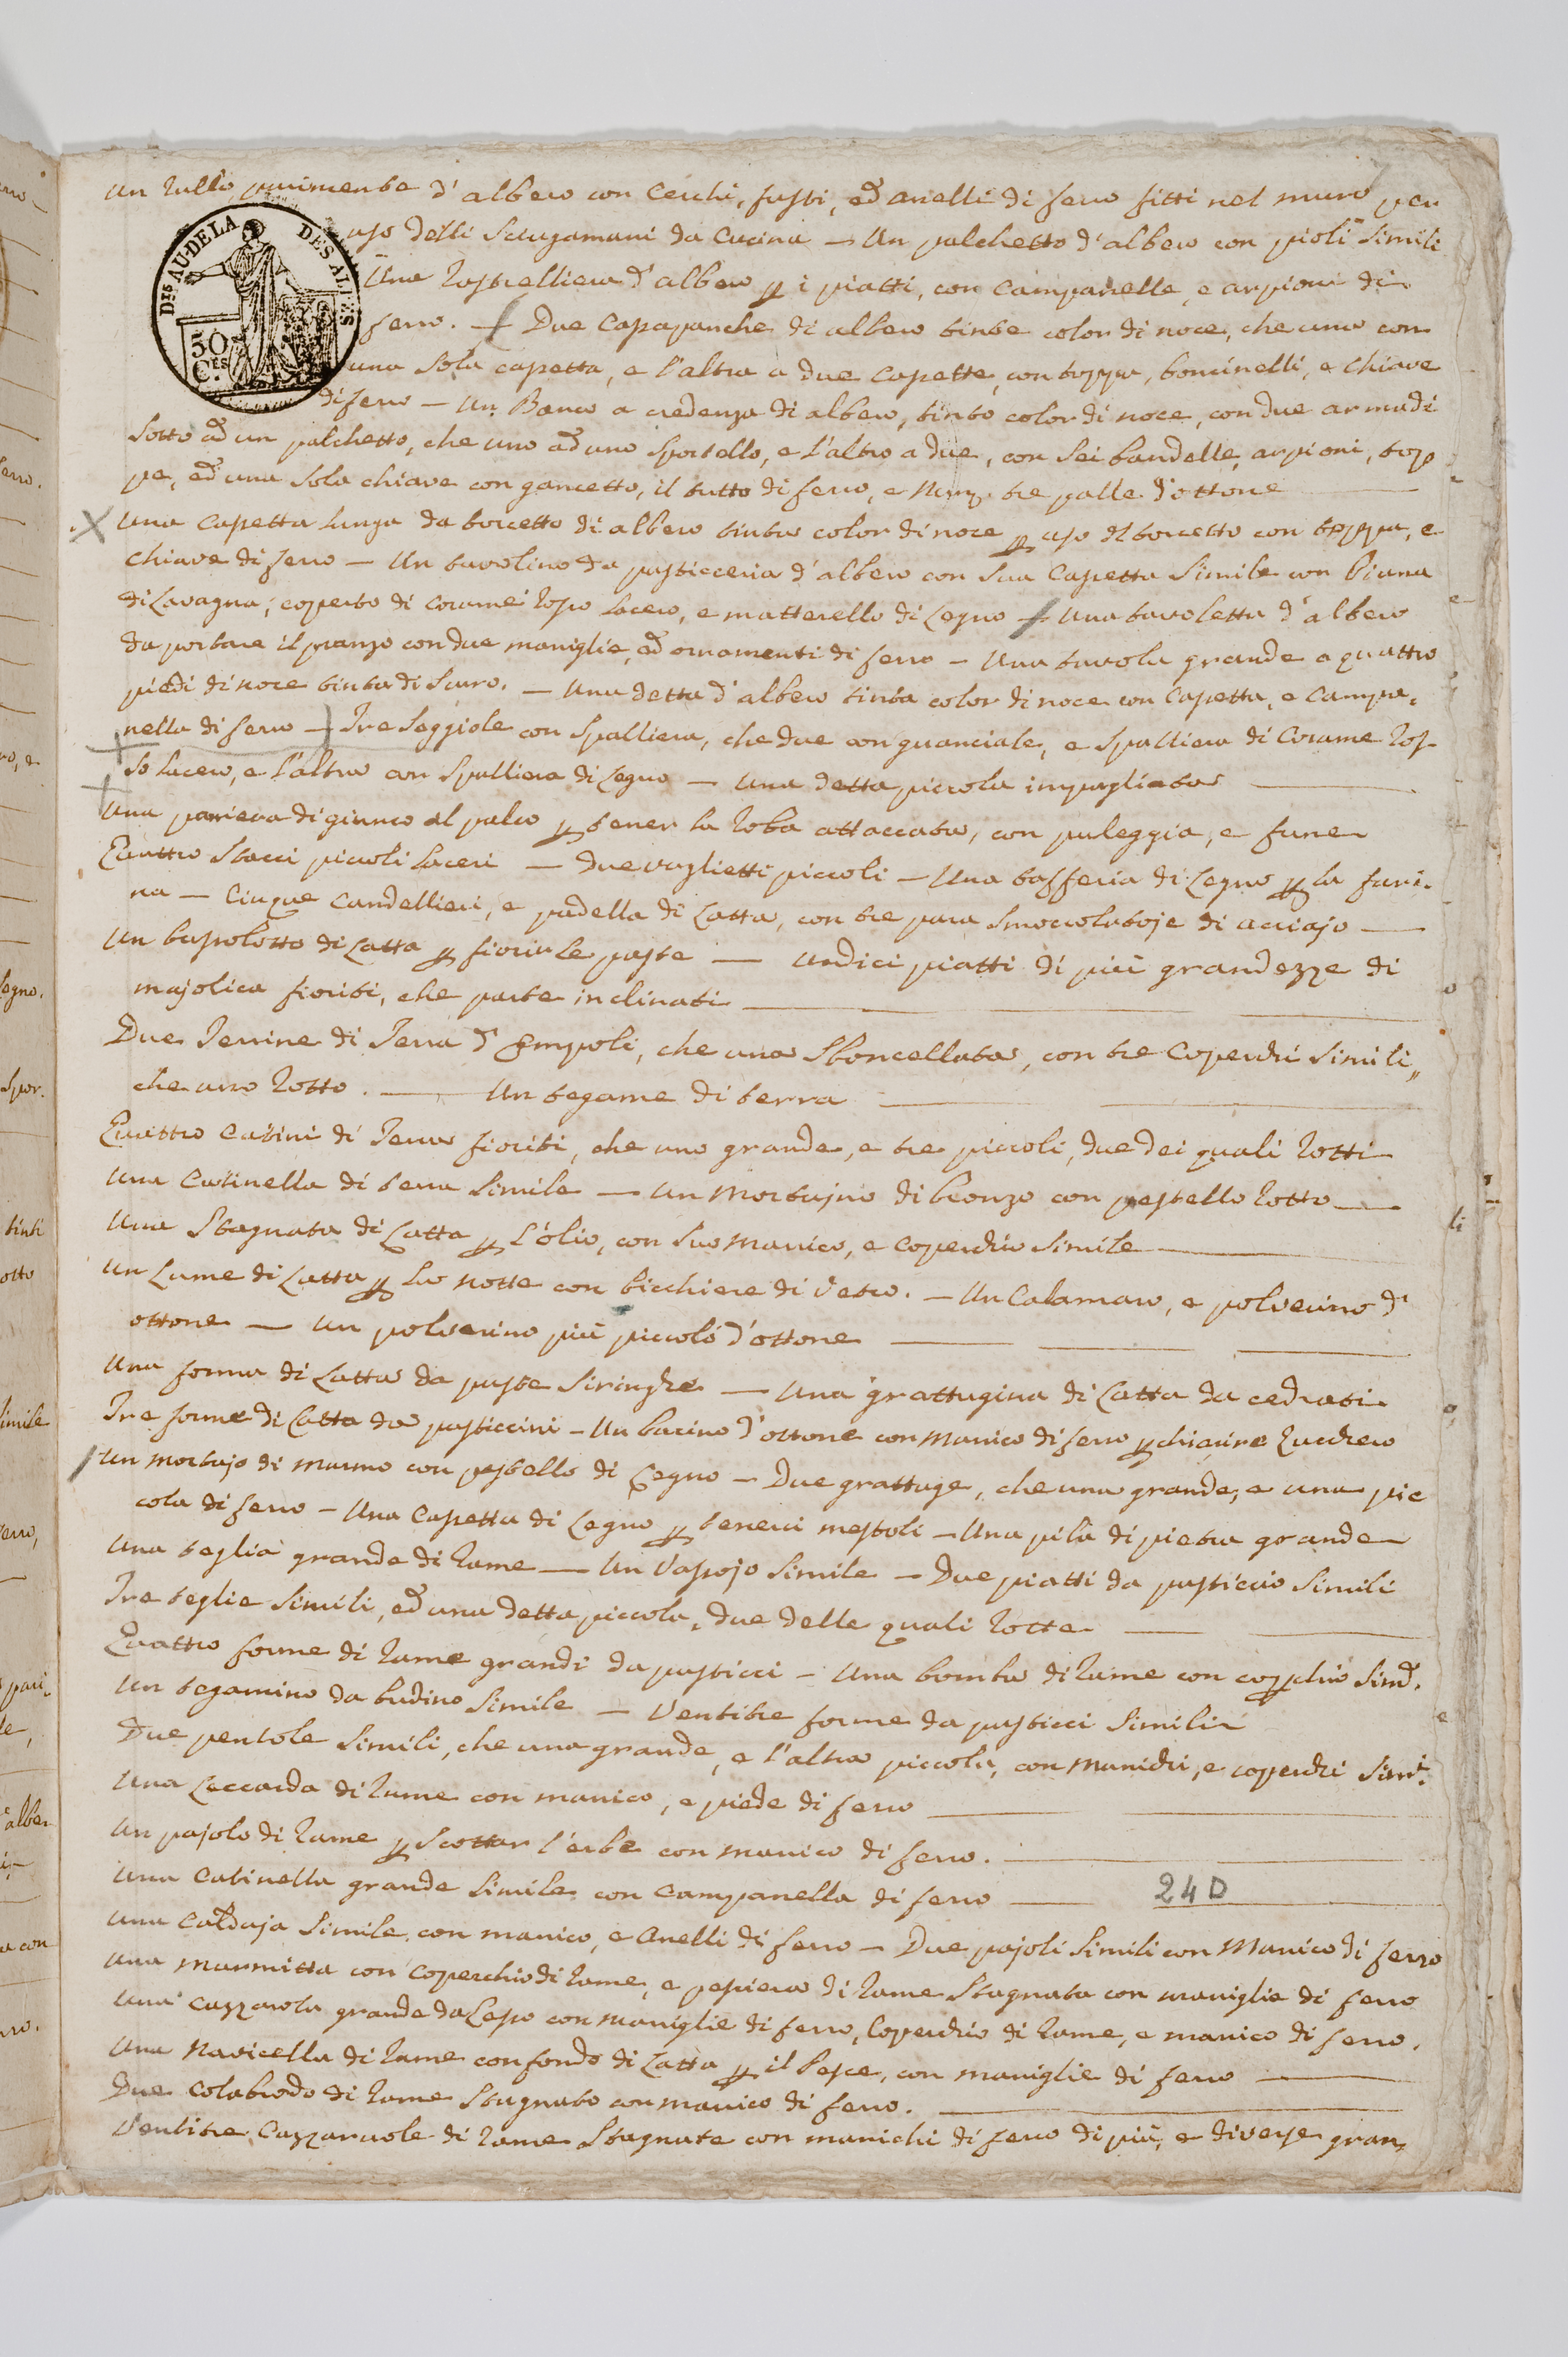 Un Rullo parimente d'albero con Cerchi, fusti, ed anelli di ferro fitti nel muro per
uso delli Sciugamani da Cucina — Un palchetto d'albero con pioli simili
Una Rastrelliera d'albero p i piatti, con Campanelle, e arpioni di
ferro. — Due Cassapanche di albero tinte color di noce, che una con
una sola cassetta, e l'altra a due Cassette, con toppa, boncinelli, e Chiave
di ferro — Un Banco a credenza di albero, tinto color di noce, con due armadi
DIS AU-DELA DES ALPES
50 CES
Sotto ed un palchetto, che uno ad uno Sportello, e l'altro a due, con Sei bandelle, arpioni, top
pe, ed una Sola chiave con gancetto, il tutto di ferro, e Num. tre palle d'ottone
Una Cassetta lunga da torcetto di albero tinta color di noce p uso del torcetto con toppa, e
Chiave di ferro — Un tavolino da pasticceria d'albero con Sua Cassetta Simile con Piana
di Lavagna, coperto di Corame Rosso lacero, e matterello di Legno — Una tavoletta d'albero
da portare il pranzo con due maniglie, ed ornamenti di ferro — Una tavola grande a quattro
piedi di noce tinta di Scuro. — Una detta d'albero tinta color di noce con Cassetta, e Campa-
nella di ferro — Tre Seggiole con Spalliera, che due con guanciale, e Spalliera di Corame Ros-
so lacero, e l'altra con Spalliera di Legno — Una detta piccola impagliata
Una paniera di giunco al palco p tener la Roba attaccata, con puleggia, e fune
Quattro Stacci piccoli laceri — Due vaglietti piccoli — Una tafferia di Legno p la fari-
na — Cinque Candellieri, e padella di Latta, con tre para Smoccolatoje di acciajo —
Un bussolotto di Latta p fiorir le paste — Undici piatti di più grandezze di
majolica fioriti, che parte inclinati
Due Terrine di Terra d'Empoli, che una Sboncellata, con tre Coperchi Simili,
che uno Rotto. — Un tegame di terra
Quattro Catini di Terra fioriti, che uno grande, e tre piccoli, due dei quali Rotti
Una Catinella di terra Simile — Un Mortajno di bronzo con pestello Rotto
Una Stagnata di Latta p l'olio, con Suo Manico, e Coperchio Simile
Un Lume di Latta p la notte con bicchiere di Vetro. — Un Calamaro, e polverino d'
ottone — Un polverino più piccolo d'ottone
Una forma di Latta da paste Siringhe — Una grattugina di Latta da cedrati
Tre forme di Latta da pasticcini — Un bacino d'ottone con Manico di ferro p chiarire Zucchero
Un mortajo di marmo con pestello di Legno — Due grattuge, che una grande, e una pic
cola di ferro — Una Cassetta di Legno p tenerci mestoli — Una pila di pietra grande
Una teglia grande di Rame — Un Vassojo Simile — Due piatti da pasticcio Simili
Tre teglie Simili, ed una detta piccola, due delle quali Rotte
Quattro forme di Rame grandi da pasticci — Una bomba di Rame con coperchio Sim.
Un tegamino da budino Simile — Ventitre forme da pasticci Simili
Due pentole Simili, che una grande, e l'altra piccola, con Manichi, e coperchi Simi.
Una Leccarda di Rame con manico, e piede di ferro
Un pajolo di Rame p Scottar l'erbe con manico di ferro.
Una Catinella grande Simile con Campanella di ferro 24 D
Una Caldaja Simile con manico, e Anelli di ferro — Due pajoli Simili con Manico di ferro
Una Marmitta con Coperchio di Rame, e pesciera di Rame Stagnata con maniglie di ferro
Una Cazzarola grande da Lesso con Maniglie di ferro, Coperchio di Rame, e manico di ferro.
Una Navicella di Rame con fondo di Latta p il Pesce, con maniglie di ferro
Due Colabrodo di Rame Stagnato con manico di ferro.
Ventitre Cazzaruole di Rame Stagnate con manichi di ferro di più, e diverse gran-